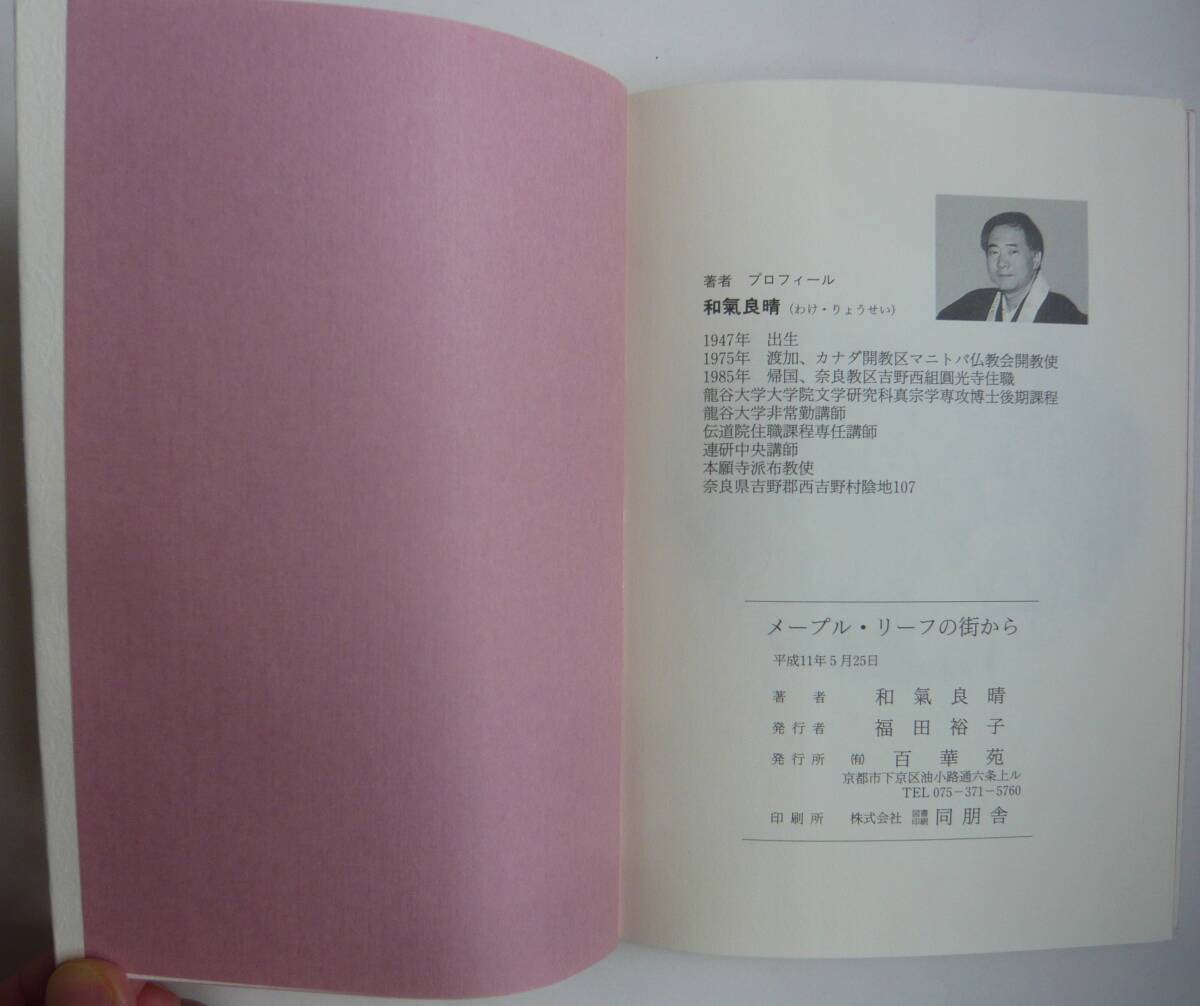 著者　プロフィール
和氣良晴（わけ・りょうせい）
1947年　出生
1975年　渡加、カナダ開教区マニトバ仏教会開教使
1985年　帰国、奈良教区吉野西組圓光寺住職
龍谷大学大学院文学研究科真宗学専攻博士後期課程
龍谷大学非常勤講師
伝道院住職課程専任講師
連研中央講師
本願寺派布教使
奈良県吉野郡西吉野村陰地107
メープル・リーフの街から
平成11年5月25日
著者　和氣良晴
発行者　福田裕子
発行所　㈲　百華苑
京都市下京区油小路通六条上ル
TEL 075－371－5760
印刷所　株式会社　図書印刷　同朋舎